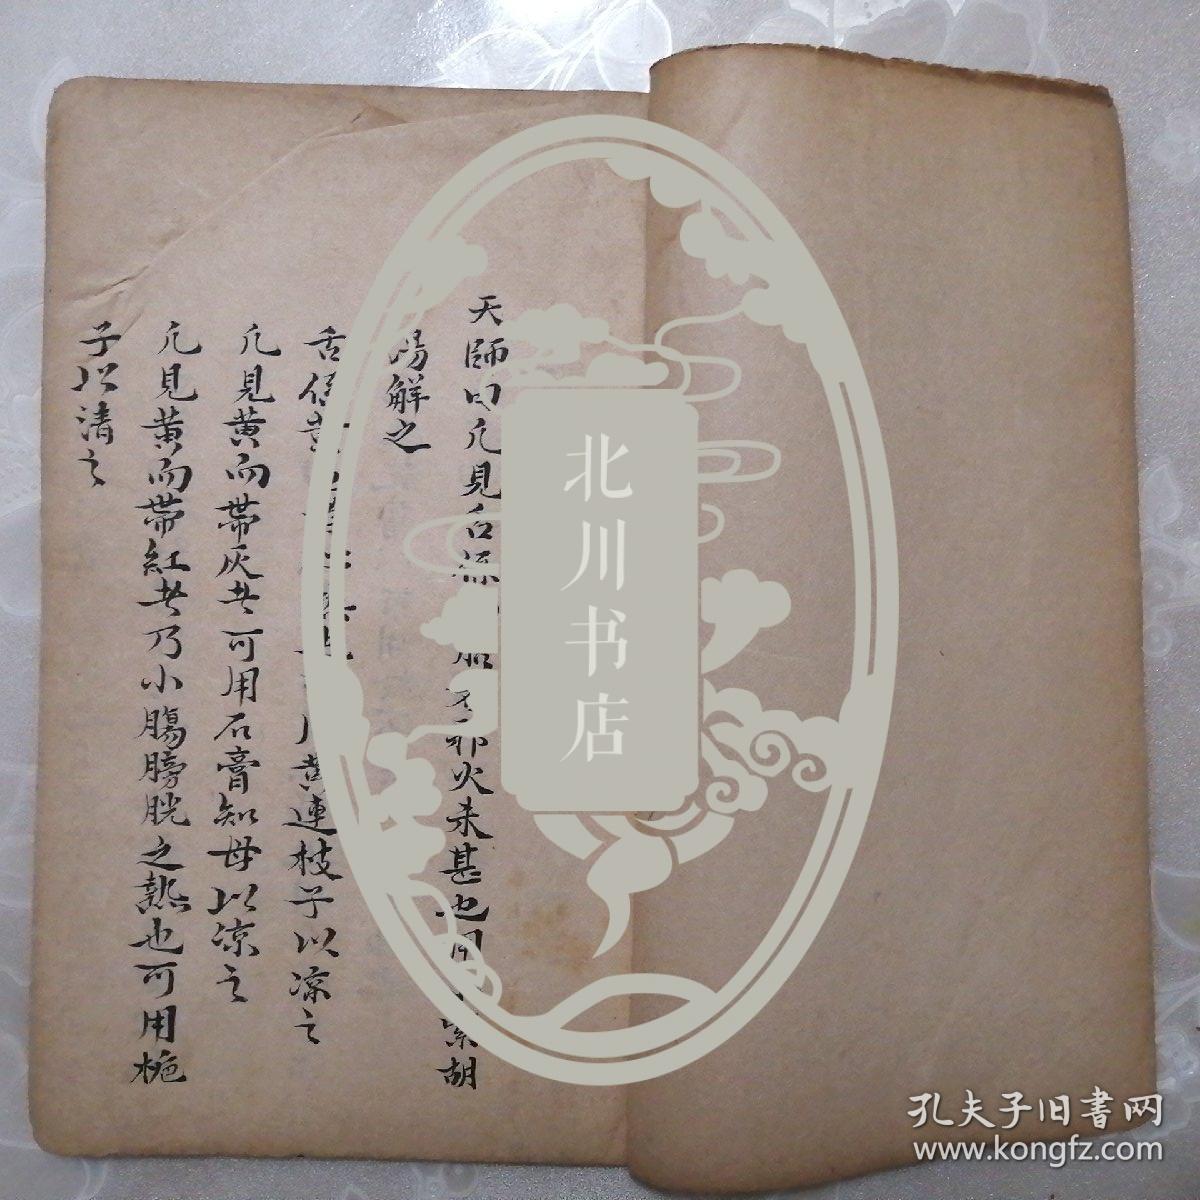 天師曰凡見舌係 胎 邪火未甚也用 柴胡
湯解之
舌係黃 黃連枝子以涼之
凡見黃而帶灰者可用石膏知母以涼之
凡見黃而帶紅者乃小腸膀胱之熱也可用梔
子以清之
北川书店
孔夫子旧書网
www.kongfz.com